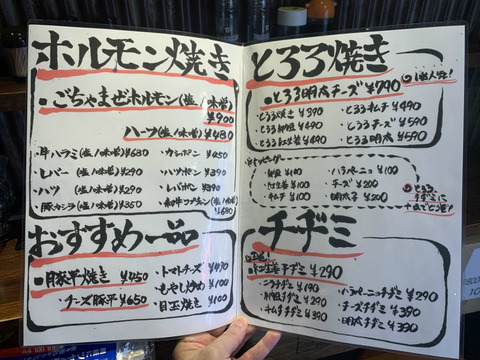 ホルモン焼き
・ごちゃまぜホルモン(塩/味噌)
¥900
ハーフ(塩/味噌)¥480
・牛ハラミ(塩/味噌)¥680
・レバー(塩/味噌)¥290
・ハツ(塩/味噌)¥290
・豚カシラ(塩/味噌)¥350
・カシポン ¥450
・ハツポン ¥390
・レバポン ¥390
(塩/味噌)
¥680
おすすめ一品
・豚平焼き ¥450
・チーズ豚平 ¥650
・トマトチーズ ¥490
・もやし炒め ¥100
・目玉焼き ¥100
とろろ焼き
・とろろ明太チーズ ¥790
1番人気!
・とろろ焼き ¥390
・とろろ納豆 ¥490
・とろろ紅生姜 ¥490
・とろろキムチ ¥490
・とろろチーズ ¥590
・とろろ明太 ¥590
トッピング
・納豆 ¥100
・紅生姜 ¥100
・キムチ ¥100
・ハラペーニョ ¥100
・チーズ ¥200
・明太子 ¥200
とろろ
チヂミに
チヂミ
・紅生姜チヂミ ¥290
・ニラチヂミ ¥190
・納豆チヂミ ¥290
・キムチチヂミ ¥390
・ハラペーニョチヂミ ¥290
・チーズチヂミ ¥390
・明太チヂミ ¥390